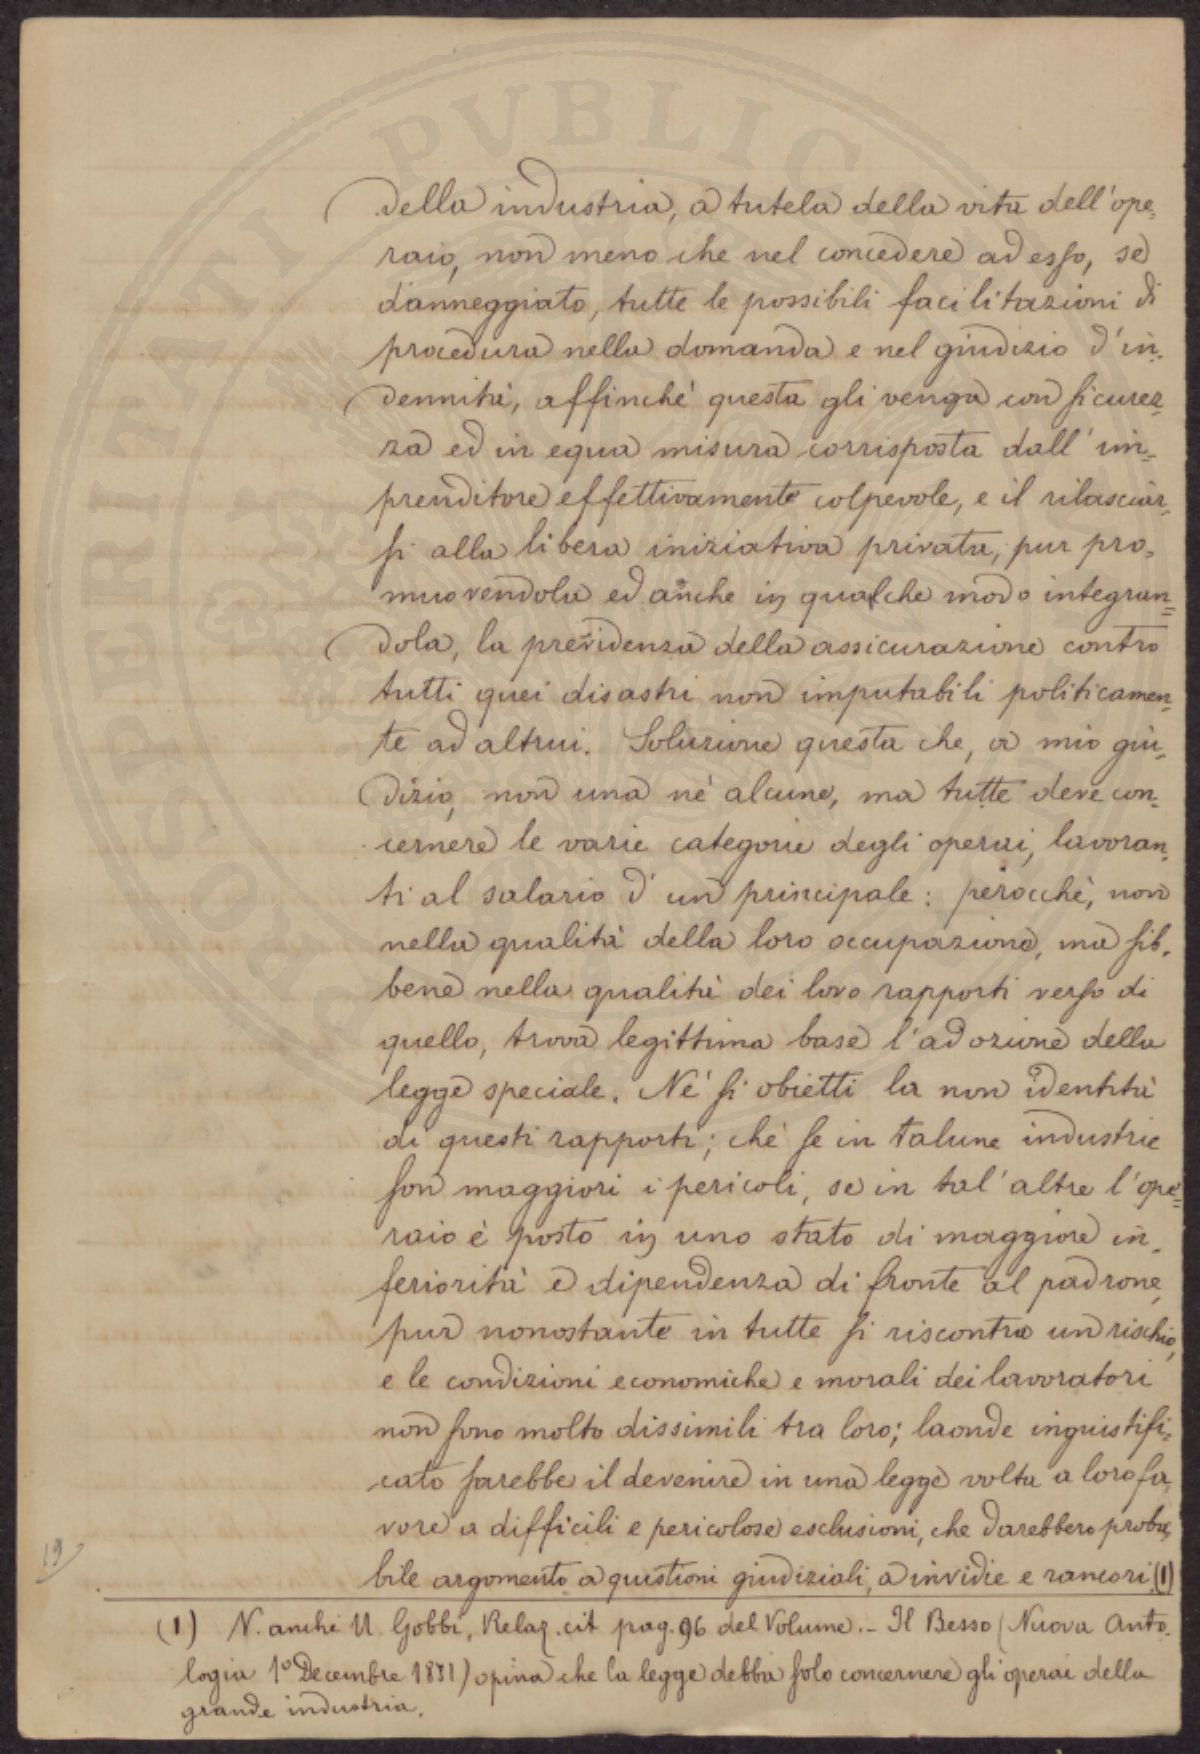 della industria, a tutela della vita dell'ope=
raio, non meno che nel concedere ad esso, se
danneggiato, tutte le possibili facilitazioni di
procedura nella domanda e nel giudizio d'in-
dennità, affinchè questa gli venga con sicurez=
za ed in equa misura corrisposta dall'im-
prenditore effettivamente colpevole, e il rilasciar-
si alla libera iniziativa privata, pur pro-
muovendola ed anche in qualche modo integran=
dola, la previdenza della assicurazione contro
tutti quei disastri non imputabili politicamen=
te ad altrui. Soluzione questa che, a mio giu-
dizio, non una nè alcune, ma tutte deve con-
cernere le varie categorie degli operai, lavoran-
ti al salario d'un principale: perocchè, non
nella qualità della loro occupazione, ma sib-
bene nella qualità dei loro rapporti verso di
quello, trova legittima base l'adozione della
legge speciale. Nè si obietti la non identità
di questi rapporti; chè se in talune industrie
son maggiori i pericoli, se in tal'altre l'ope=
raio è posto in uno stato di maggiore in-
feriorità e dipendenza di fronte al padrone,
pur nonostante in tutte si riscontra un rischio,
e le condizioni economiche e morali dei lavoratori
non sono molto dissimili tra loro; laonde ingiustifi-
cato sarebbe il devenire in una legge volta a loro fa-
vore a difficili e pericolose esclusioni, che darebbero proba-
bile argomento a questioni giudiziali, a invidie e rancori.(1)
(1) N. anche U. Gobbi, Relaz. cit. pag. 96 del Volume. - Il Besso (Nuova Anto-
logia 1° Decembre 1881) opina che la legge debba solo concernere gli operai della
grande industria.
19
PROSPERITATI PVBLIC